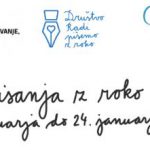 VANJE,
Društvo
Radi
pišemo
z roko
isanja iz roko
uarja do 24. januarj